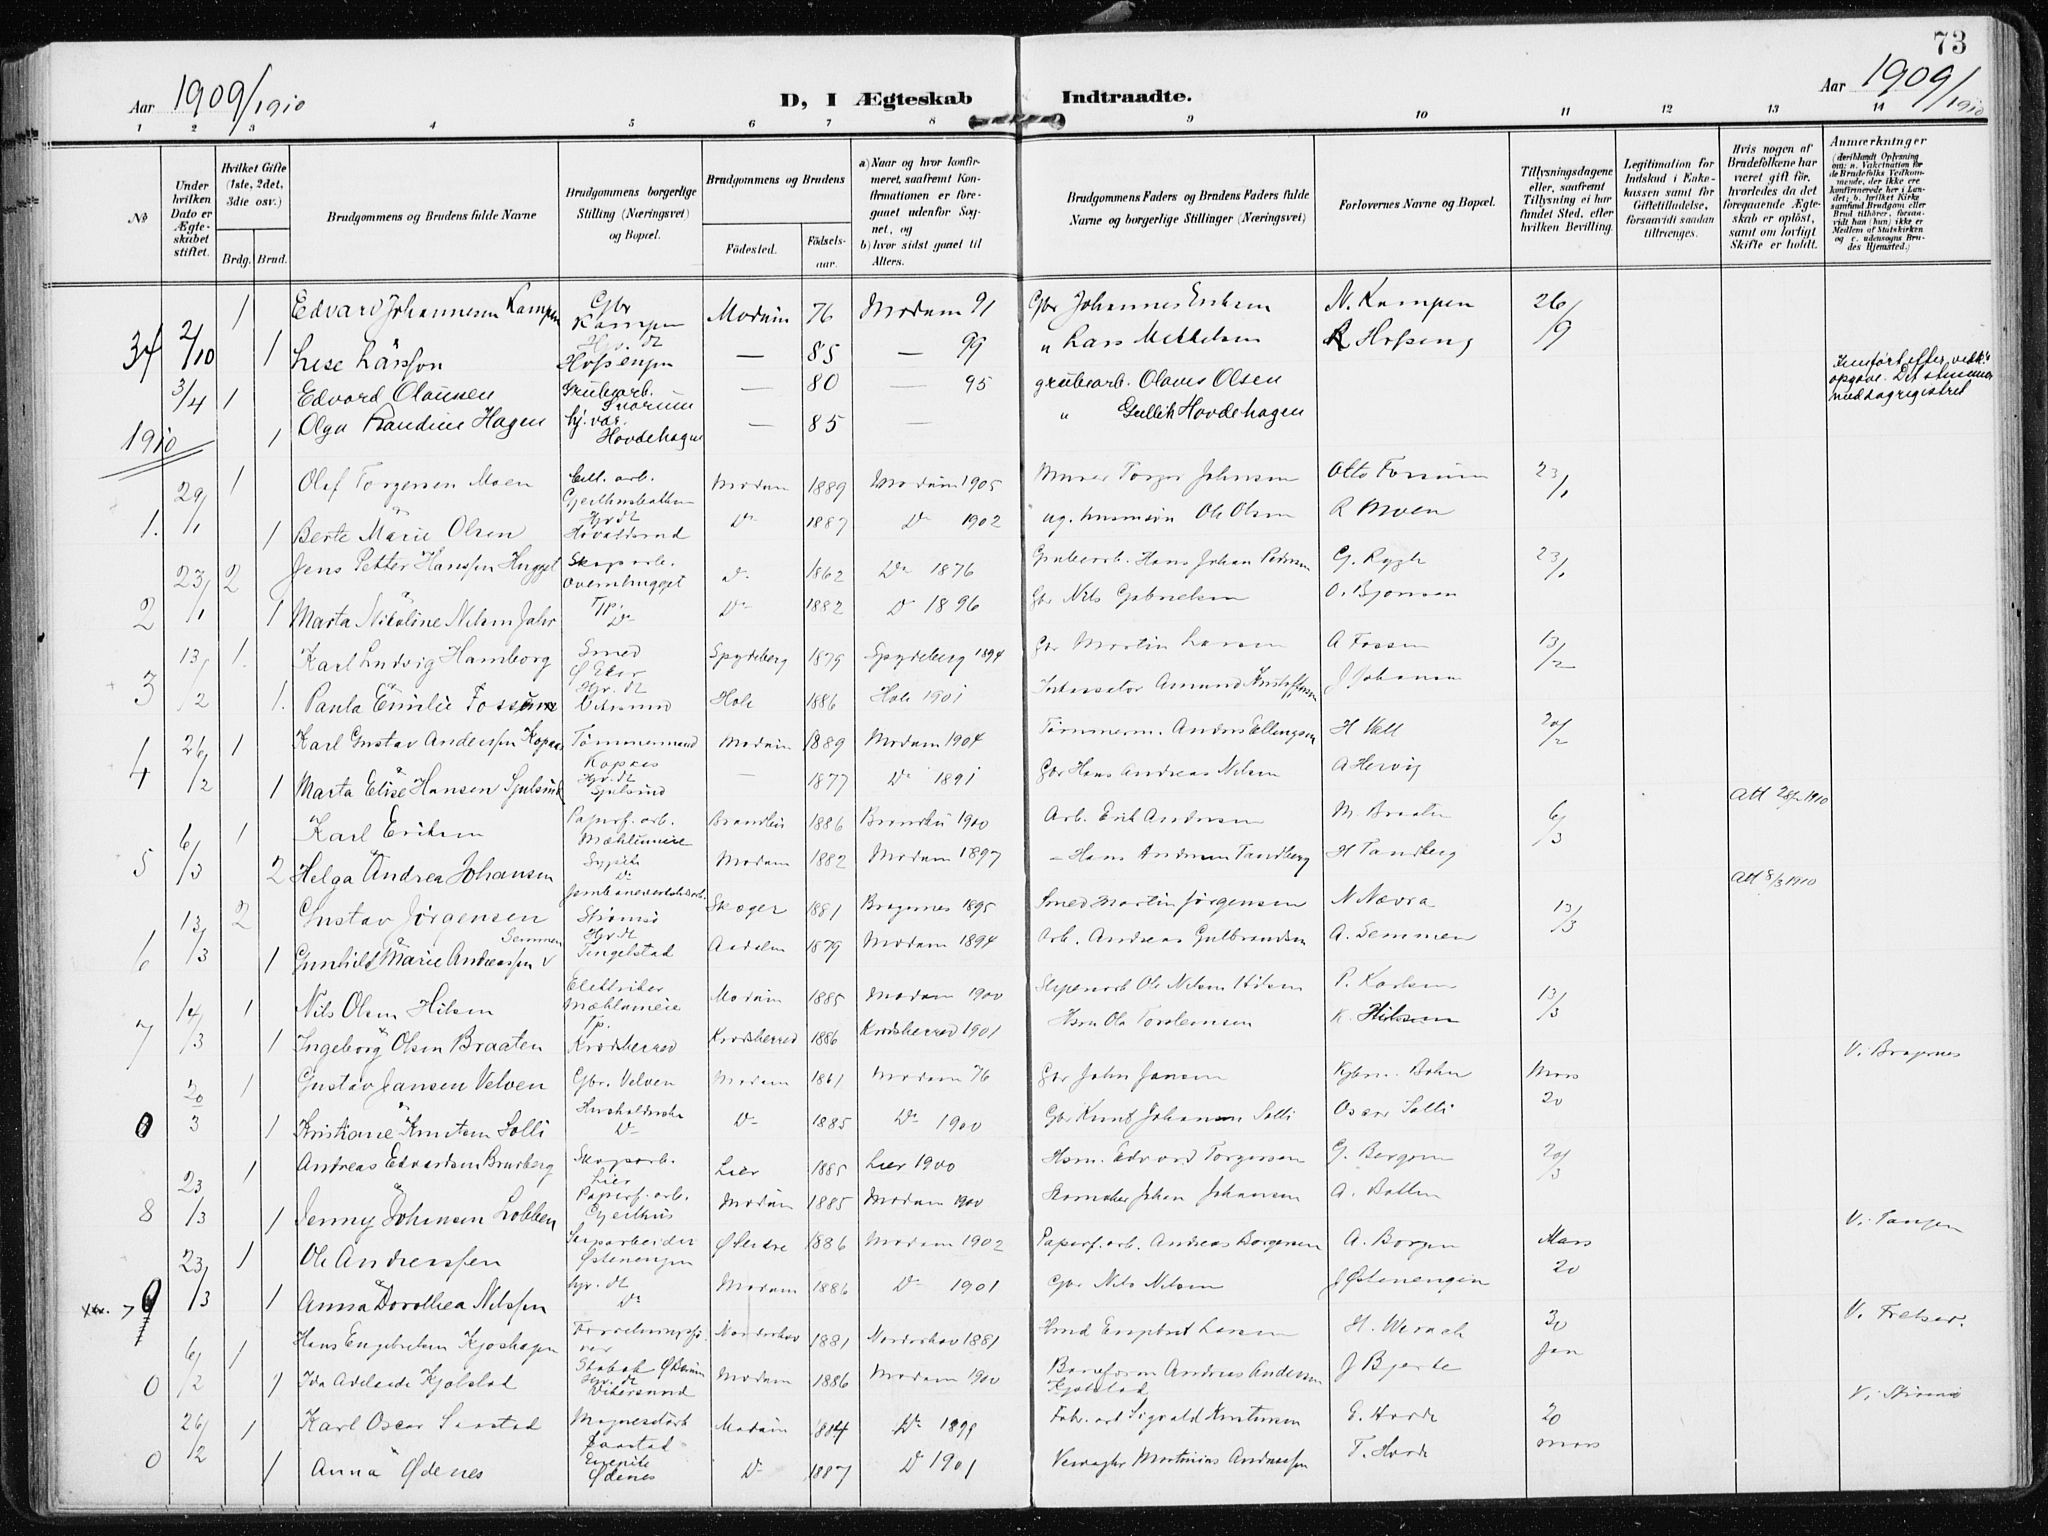 73
Aar 1909/1910 D, I Ægteskab Indtraadte. Aar 1909/1910
1 2 3 4 5 6 7 8 9 10 11 12 13 14
No
Under hvilken Dato er Ægteskabet stiftet.
Hvilket Gifte (1ste, 2det, 3die osv.)
Brdg. Brud.
Brudgommens og Brudens fulde Navne
Brudgommens borgerlige Stilling (Næringsvei) og Bopæl.
Brudgommens og Brudens
Fødested. Fødselsaar.
a) Naar og hvor konfirmeret, saafremt Konfirmationen er foregaaet udenfor Sognet, og
b) hvor sidst gaaet til Alters.
Brudgommens Faders og Brudens Faders fulde Navne og borgerlige Stillinger (Næringsvei)
Forlovernes Navne og Bopæl.
Tillysningsdagene eller, saafremt Tillysning ei har fundet Sted, efter hvilken Bevilling.
Legitimation for Indskud i Enkekassen samt for Giftetilladelse, forsaavidt saadan tiltrænges.
Hvis nogen af Brudefolkene har været gift før, hvorledes da det foregaaende Ægteskab er opløst, samt om lovligt Skifte er holdt.
Anmærkninger
(deriblandt Oplysning om: a. Vakcination for de Brudefolks Vedkommende, der ikke ere konfirmerede her i Landet; b. hvilket Kirkesamfund Brudgom eller Brud tilhører, forsaavidt han (hun) ikke er Medlem af Statskirken og c. udensogns Brudes Hjemsted.)
1 Edvard Johannesen Kampen Gbr Kampen Modum 76 Modum 91 Gbr Johannes Eriksen N. Kampen 26/9
34 2/10 1 Lise Larsson Hjv. dt Hofsengen — 85 — 99 " Lars Mikkelsen R Hofseng
3/4 1 Edvard Olausen Grubearb. Snarum — 80 — 95 grubearb. Olaus Olsen
1 Olga Randine Hagen hj. vær. Hovdehagen — 85 — " Gullik Hovdehagen
1910
29/1 1 Olaf Torgersen Moen Modum 1889 Modum 1905 Murer Torger Johnsen Otto Fossum 23/1
1. 1 Berte Marie Olsen Hjv dt Do 1887 Do 1902 Ole Olsen R Moen
23/1 2 Jens Petter Hanssen Hugget Skoparb. Overnhugget Do 1862 Do 1876 Grubearb. Hans Johan Pedersen G. Rygh 23/1
2 1 Marta Nicoline Nilsen Jahr Tp. Do Do 1882 Do 1896 Gbr Nils Gabrielsen O. Bjonsen
13/2 1. Karl Ludvig Hamborg Smed Ø Eker Spydeberg 1879 Spydeberg 1894 Gbr Martin Larsen A Fossum 13/2
3 1. Paula Emilie Fossum Hjv. dt Vikersund Hole 1886 Hole 1901 Amund J Johansen
4 26/2 1 Karl Gustav Anderssen Kopaas Tømmermand Modum 1889 Modum 1904 Tømmerm. Anders Ellingsen H Vell 20/2
1 Marta Elise Hansen Hjv. dt — 1877 Do 1891 Gbr Hans Andreas Nilsen A Hervig
Att 28/2 1910
6/3 1 Karl Eriksen Papirf. arb. Brandbu 1886 Brandbu 1900 Arb. Erik Andersen M. Braaten 6/3
5 2 Helga Andrea Johansen Sypike Do Modum 1882 Modum 1897 — Hans Andersen Tandberg H Tandberg
Att 8/3 1910
13/3 2 Gustav Jørgensen Jernbaneverkstedarb. Strømsø Skoger 1881 Bragernes 1895 Smed Martin Jørgensen N Nævra 13/3
6 1 Gunhild Marie Andreassen Semmen Hjv dt Tingelstad Aadalen 1879 Modum 1894 Arb. Andreas Gulbrandsen A. Semmen
14/3 1 Nils Olsen Hilsen Elektriker Modum 1885 Modum 1900 Ole Nilsen Hilsen P. Karlsen 13/3
7 1 Ingeborg Olsen Braaten Tp. Krødsherred Krødsherred 1886 Krødsherred 1901 Hsm Ole Torstensen K. Hilsen
V. Bragernes
20/3 1 Gustav Jansen Velven Gbr. Velven Modum 1861 Modum 76 Gbr John Jansen Kjbm. Bohn Mars
0 1 Kristiane Knutsen Solli Husholderske Do Do 1885 Do 1900 Gbr Knut Johansen Solli Oscar Solli 20
23/3 1 Andreas Edvardsen Bruberg Skoparb. Lier Lier 1885 Lier 1900 Hsm. Edvard Torgersen G. Bergum 20/3
8 1 Jenny Johansen Lobben Papirf. arb. Geithus Modum 1885 Modum 1900 Skomaker Johan Johansen A. Botten
V. Tangen
23/3 1 Ole Andreassen Østenengen 1886 Modum 1902 Papirf. arb. Andreas Borgersen A. Borgen Mars
9 1 Anna Dorothea Nilssen hjv. dt Do Modum 1886 Do 1901 Gbr Nils Nilsen J Østenengen 20
V.
6/2 1 Hans Engebretsen Kjoshagen Norderhov 1881 Norderhov 1881 Engebret Larsen H. 30
0 1 Ida Adelaide Kjølstad Hjv. dt Vikersund Modum 1886 Modum 1900 Baneform Andreas Andersen Kjølstad J Bjerke Jan
V.
26/2 1 Karl Oscar Saastad Saastad Modum 1884 Do 1899 Fabr. arb Sigvald Kristensen E. Hovde 20
0 1 Anna Ødenes Ødenes Do 1887 Do 1901 Veivogter Martinius Andreassen T. Hovde Mars